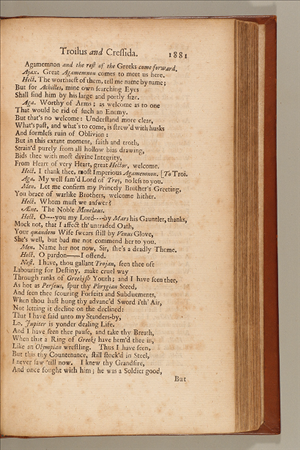 Troilus and Cressida. 1881
Agamemnon and the rest of the Greeks come forward.
Ajax. Great Agamemnon comes to meet us here.
Hect. The worthiest of them, tell me name by name;
But for Achilles, mine own searching Eyes
Shall find him by his large and portly size.
Aga. Worthy of Arms: as welcome as to one
That would be rid of such an Enemy.
But that's no welcome: Understand more clear,
What's past, and what's to come, is strew'd with husks
And formless ruin of Oblivion:
But in this extant moment, faith and troth,
Strain'd purely from all hollow bias drawing,
Bids thee with most divine Integrity,
From Heart of very Heart, great Hector, welcome.
Hect. I thank thee, most Imperious Agamemnon. [To Troi.
Aga. My well fam'd Lord of Troy, no less to you.
Men. Let me confirm my Princely Brother's Greeting,
You brace of warlike Brothers, welcome hither.
Hect. Whom must we answer?
Æne. The Noble Menelaus.
Hect. O----you my Lord----by Mars his Gauntlet, thanks,
Mock not, that I affect th' untraded Oath,
Your quondam Wife swears still by Venus Glove,
She's well, but bad me not commend her to you.
Men. Name her not now, Sir, she's a deadly Theme.
Hect. O pardon------I offend.
Nest. I have, thou gallant Trojan, seen thee oft
Labouring for Destiny, make cruel way
Through ranks of Greekish Youth; and I have seen thee,
As hot as Perseus, spur thy Phrygian Steed,
And seen thee scorning Forfeits and Subduements,
When thou hast hung thy advanc'd Sword i'th' Air,
Not letting it decline on the declined:
That I have said unto my Standers-by,
Lo, Jupiter is yonder dealing Life.
And I have seen thee pause, and take thy Breath,
When that a Ring of Greeks have hem'd thee in,
Like an Olympian wrestling. Thus I have seen.
But this thy Countenance, still lock'd in Steel,
I never saw 'till now. I knew thy Grandsire,
And once fought with him; he was a Soldier good,
But